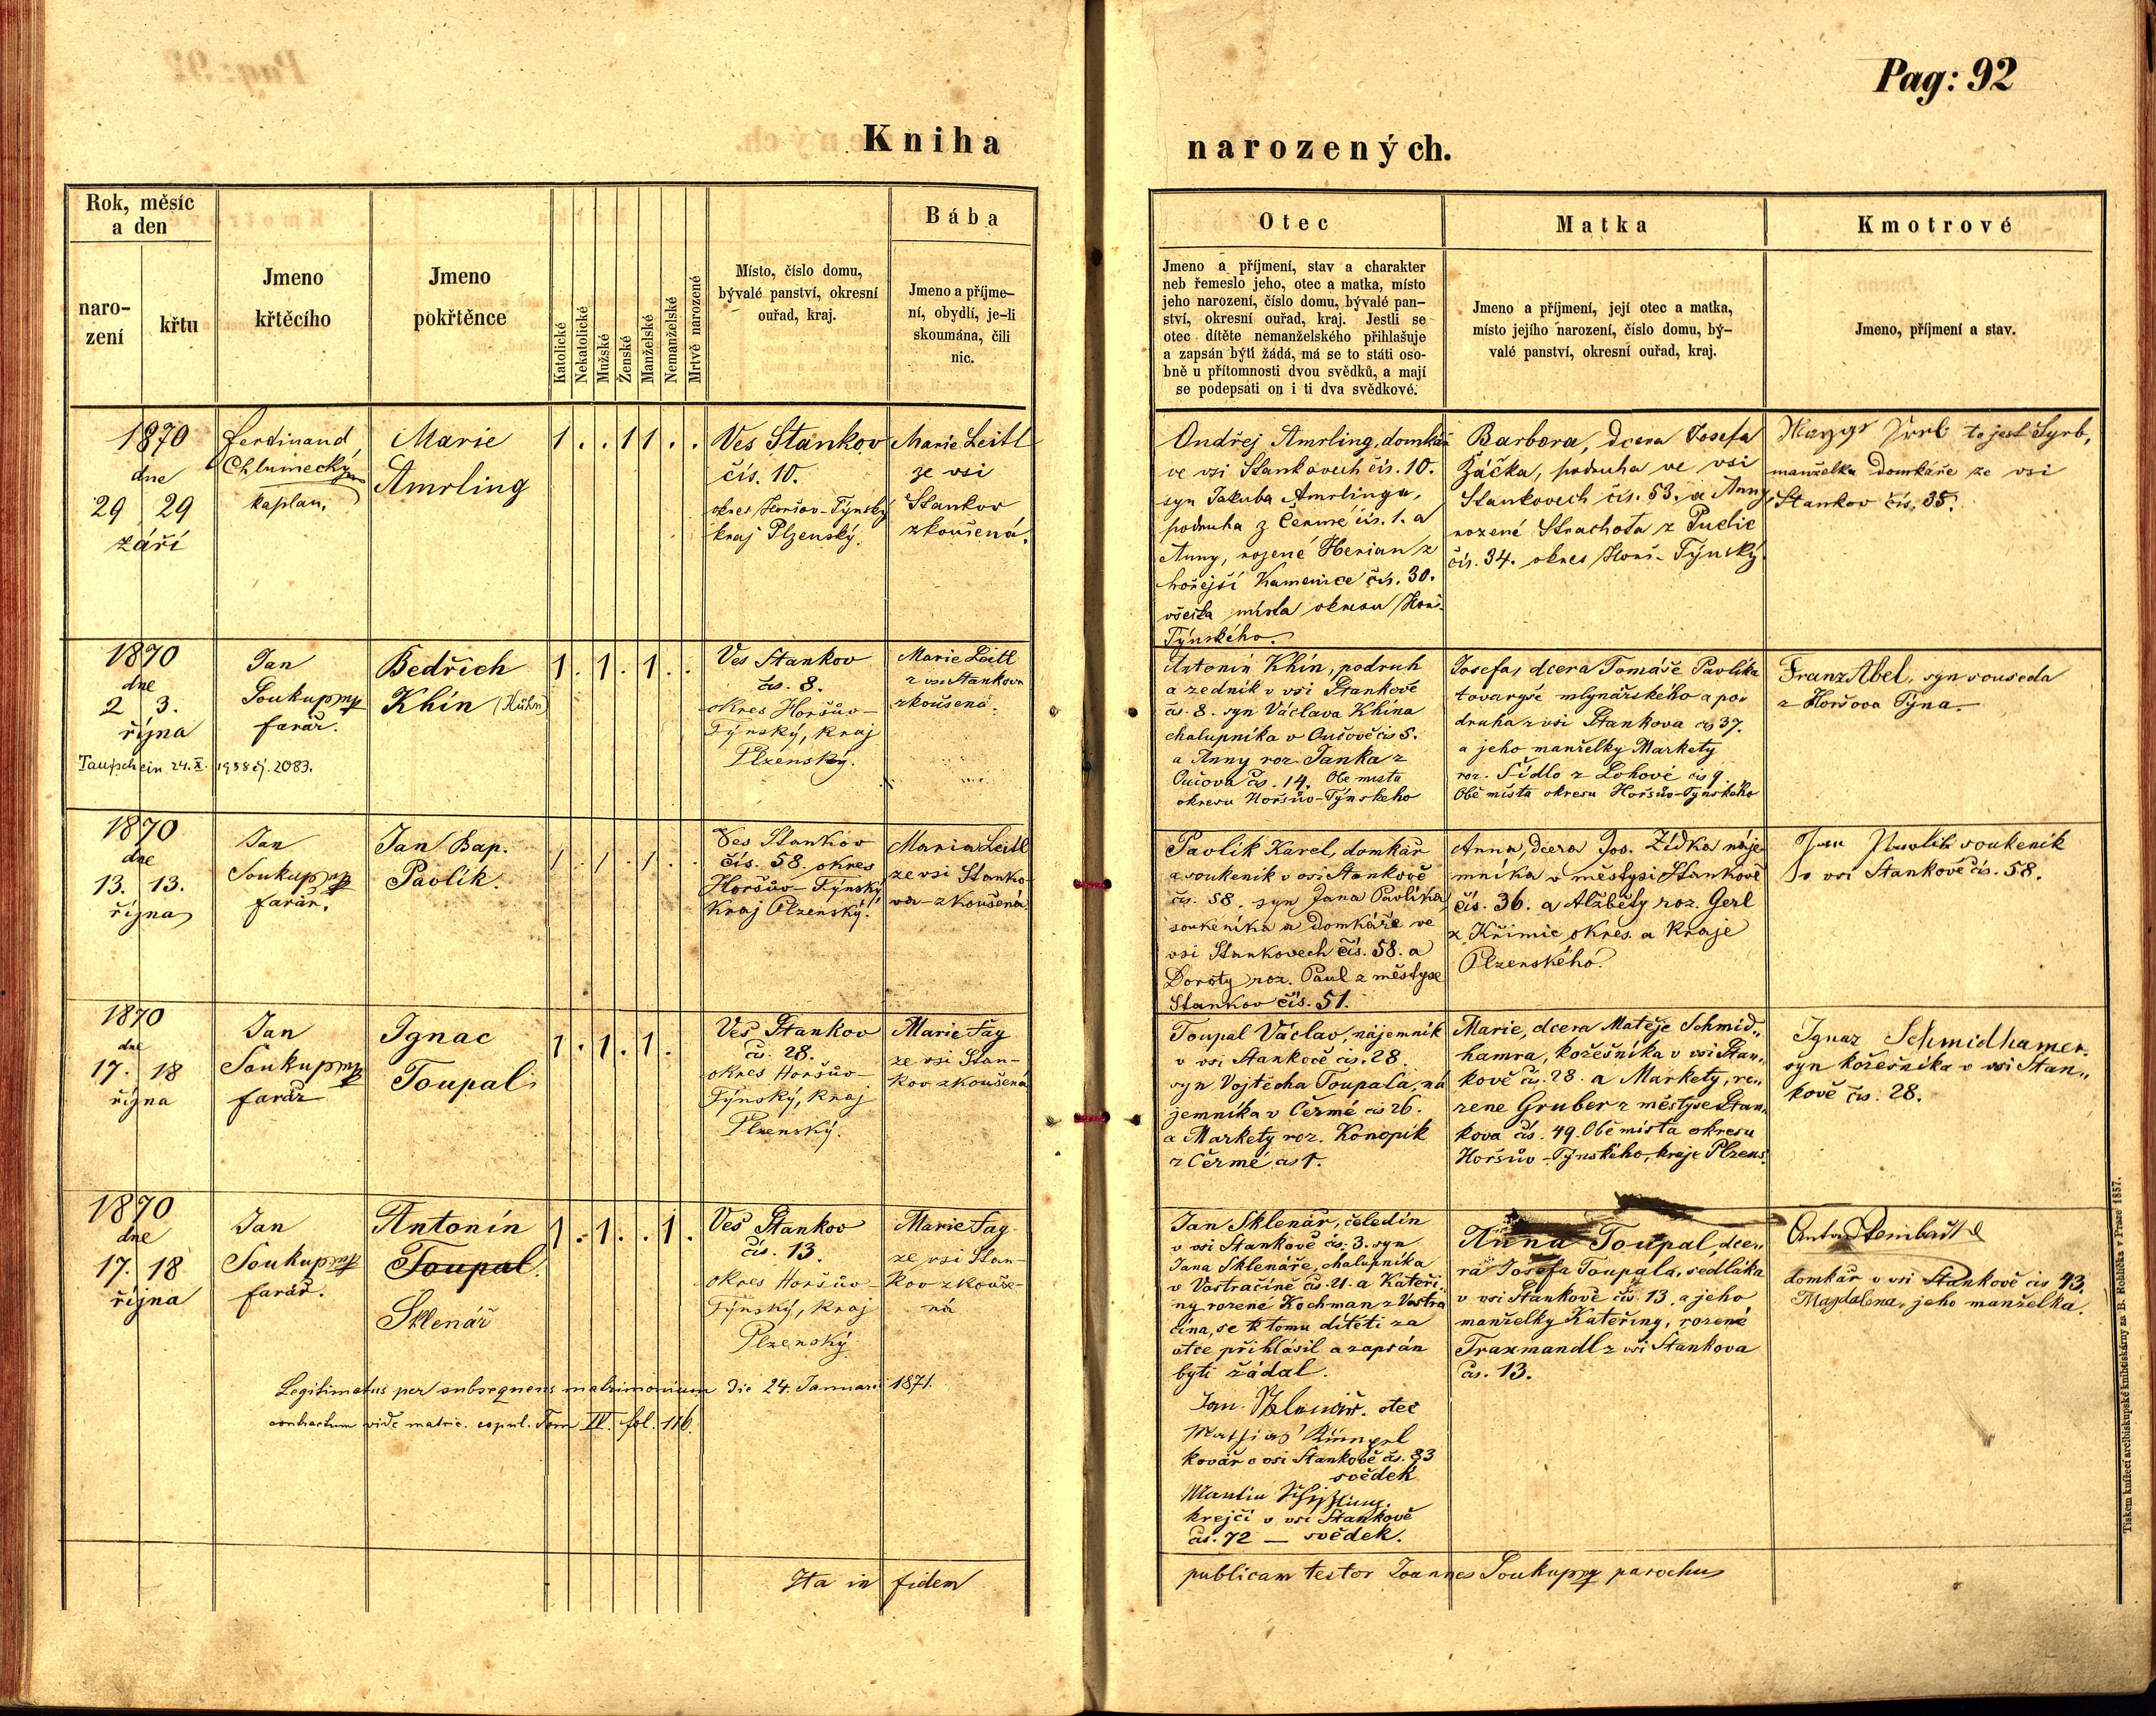 Pag: 92
Kniha narozených.
Rok, měsíc
a den
naro-
zení
křtu
Jmeno
křtěcího
Jmeno
pokřtěnce
Katolické
Nekatolické
Mužské
Ženské
Manželské
Nemanželské
Mrtvě narozené
Místo, číslo domu,
bývalé panství, okresní
ouřad, kraj.
Bába
Jmeno a příjme-
ní, obydlí, je-li
skoumána, čili
nic.
Otec
Jmeno a příjmení, stav a charakter
neb řemeslo jeho, otec a matka, místo
jeho narození, číslo domu, bývalé pan-
ství, okresní ouřad, kraj. Jestli se
otec dítěte nemanželského přihlašuje
a zapsán býti žádá, má se to státi oso-
bně u přítomnosti dvou svědků, a mají
se podepsati on i ti dva svědkové.
Matka
Jmeno a příjmení, její otec a matka,
místo jejího narození, číslo domu, bý-
valé panství, okresní ouřad, kraj.
Kmotrové
Jmeno, příjmení a stav.
1870
dne
29 29
září
Ferdinand
Chlumecký
kaplan,
Marie
Amrling
1 . . 1 1 . .
Ves Stankov
čís. 10.
okres Horšov-Týnský
kraj Plzenský.
Marie Leitl
ze vsi
Stankov
zkoušená.
Ondřej Amrling, domkář
ve vsi Stankovech čís. 10.
syn Jakuba Amrlinga,
podruha z Čermé čís. 1. a
Anny, rozené Herian z
hořejší Kamenice čís. 30.
všecka místa okresu Horš.
Týnského.
Barbora, dcera Josefa
Žáčka, podruha ve vsi
Stankovech čís. 53. a Anny,
rozené Strachota z Pudic
čís. 34. okres Horš. Týnský.
to jest Syrb,
manželka domkáře ze vsi
Stankov čís. 35.
1870
dne
2 3.
října
Taufschein 24.X. 1938 čj. 2083.
Jan
Soukup mp
farář.
Bedřich
Khín (Kühn)
1 . 1 . 1 . .
Ves Stankov
čís. 8.
okres Horšův-
Týnský, kraj
Plzenský.
Marie Leitl
z vsi Stankova
zkoušená.
Antonín Khín, podruh
a zedník v vsi Stankově
čís. 8. syn Václava Khína
chalupníka v Oučově čís 5.
a Anny roz. Janka z
Oučova čís. 14. Obe mista
okresu Horšův-Týnského
Josefa, dcera Tomáše Pavlíka
tovaryše mlynářského a po-
druha z vsi Stankova čís 37.
a jeho manželky Markety
roz. Šídlo z Lohové čís 9.
Obě místa okresu Horšův-Týnského
Franz Abel, syn souseda
z Horšova Týna.
1870
dne
13. 13.
října
Jan
Soukup mp
farář.
Jan Bap.
Pavlík.
1 . 1 . 1 . .
Ves Stankov
čís. 58. okres
Horšův-Týnský
kraj Plzenský.
Maria Leitl
ze vsi Stanko-
va - zkoušená.
Pavlík Karel, domkář
a soukeník v vsi Stankově
čís. 58. syn Jana Pavlíka,
soukeníka a domkáře ve
vsi Stankovech čís. 58. a
Doroty roz. Paul z městyse
Stankov čís. 51.
Anna, dcera Jos. Zídka náje-
mníka v městysi Stankově
čís. 36. a Alžběty roz. Gerl
z Křimic okres. a Kraje
Plzenského.
Jan Pavlik soukenik
v vsi Stankově čís. 58.
1870
dne
17. 18
října
Jan
Soukup mp
farář
Ignac
Toupal
1 . 1 . 1 .
Ves Stankov
čís. 28.
okres Horšův-
Týnský, kraj
Plzenský.
Marie Fag
ze vsi Stan-
kov zkoušená
Toupal Václav, nájemník
v vsi Stankově čís. 28.
syn Vojtěcha Toupala, ná
jemníka v Čermé čís 26.
a Markety roz. Konopík
z Čermé čís 1.
Marie, dcera Matěje Schmid„
hamra, kožešníka v vsi Stan„
kově čís. 28. a Markety, ro„
zene Gruber z městyse Stan„
kova čís. 49. Obě místa okresu
Horšův-Týnského, kraje Plzens.
Ignaz Schmidhamer
syn kožešníka v vsi Stan„
kově čís. 28.
1870
dne
17. 18
října
Jan
Soukup mp
farář.
Antonín
Toupal.
Sklenář
1 . 1 . . 1 .
Ves Stankov
čís. 13.
okres Horšův-
Týnský, kraj
Plzenský.
Marie Fag
ze vsi Stan-
kov zkouše-
ná
Legitimatus per subsequens matrimonium die 24. Januarii 1871.
contractum vide matric. copul. Tom IV. fol. 116.
Jan Sklenář, čeledín
v vsi Stankově čís. 3. syn
Jana Sklenáře, chalupníka
v Vostračíně čís. 21. a Kateři
ny rozené Kochman z Vostra
čína, se k tomu dítěti za
otce přihlásil a zapsán
byti žádal.
Jan. Sklenář. otec
kovář v vsi Stankově čís. 83
svědek
Martin
krejčí v vsi Stankově
čís. 72 — svědek.
Anna Toupal, dce„
ra Josefa Toupala, sedláka
v vsi Stankově čís 13. a jeho
manželky Kateřiny, rozené
Traxmandl z vsi Stankova
čís. 13.
domkář v vsi Stankově čís 43.
Magdalena, jeho manželka.
Ita in fidem publicam testor Joannes Soukup mp parochus
Tiskem knížecí arcibiskupské knihtiskárny za B. Rohlíčka v Praze 1857.